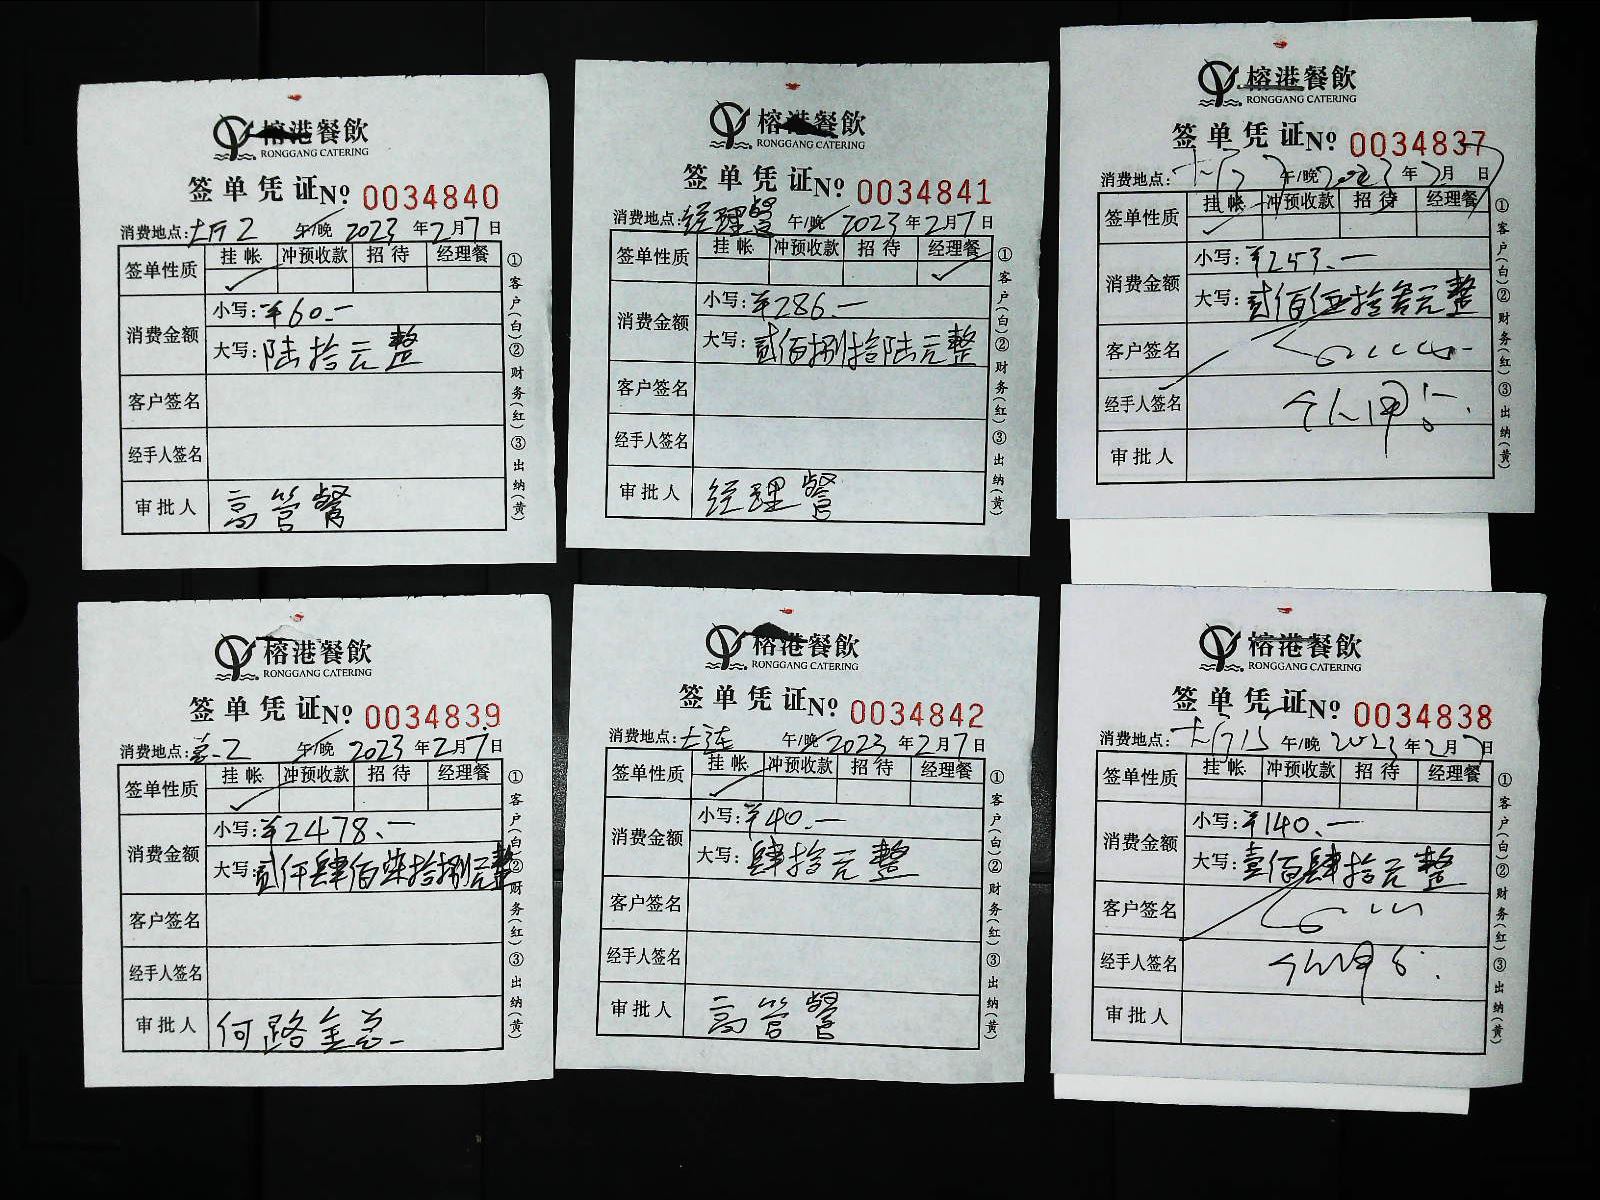 榕港餐飲
RONGGANG CATERING
签单凭证№ 0034840
消费地点:大厅2 午/晚 2023年2月7日
签单性质 挂帐 冲预收款 招待 经理餐
✓
消费金额 小写:¥60.-
大写:陆拾元整
客户签名
经手人签名
审批人 高管餐
①客户(白)②财务(红)③出纳(黄)
榕港餐飲
RONGGANG CATERING
签单凭证№ 0034841
消费地点:经理餐 午/晚 2023年2月7日
签单性质 挂帐 冲预收款 招待 经理餐
✓
消费金额 小写:¥286.-
大写:贰佰捌拾陆元整
客户签名
经手人签名
审批人 经理餐
①客户(白)②财务(红)③出纳(黄)
榕港餐飲
RONGGANG CATERING
签单凭证№ 0034837
消费地点: 午/晚 2023年2月7日
签单性质 挂帐 冲预收款 招待 经理餐
✓
消费金额 小写:¥253.-
大写:贰佰伍拾叁元整
客户签名
经手人签名
审批人
①客户(白)②财务(红)③出纳(黄)
榕港餐飲
RONGGANG CATERING
签单凭证№ 0034839
消费地点: 午/晚 2023年2月7日
签单性质 挂帐 冲预收款 招待 经理餐
✓
消费金额 小写:¥2478.-
大写:贰仟肆佰柒拾捌元整
客户签名
经手人签名
审批人 何路金总
①客户(白)②财务(红)③出纳(黄)
榕港餐飲
RONGGANG CATERING
签单凭证№ 0034842
消费地点: 午/晚 2023年2月7日
签单性质 挂帐 冲预收款 招待 经理餐
✓
消费金额 小写:¥40.-
大写:肆拾元整
客户签名
经手人签名
审批人 高管餐
①客户(白)②财务(红)③出纳(黄)
榕港餐飲
RONGGANG CATERING
签单凭证№ 0034838
消费地点:大厅15 午/晚 2023年2月7日
签单性质 挂帐 冲预收款 招待 经理餐
消费金额 小写:¥140.-
大写:壹佰肆拾元整
客户签名
经手人签名
审批人
①客户(白)②财务(红)③出纳(黄)